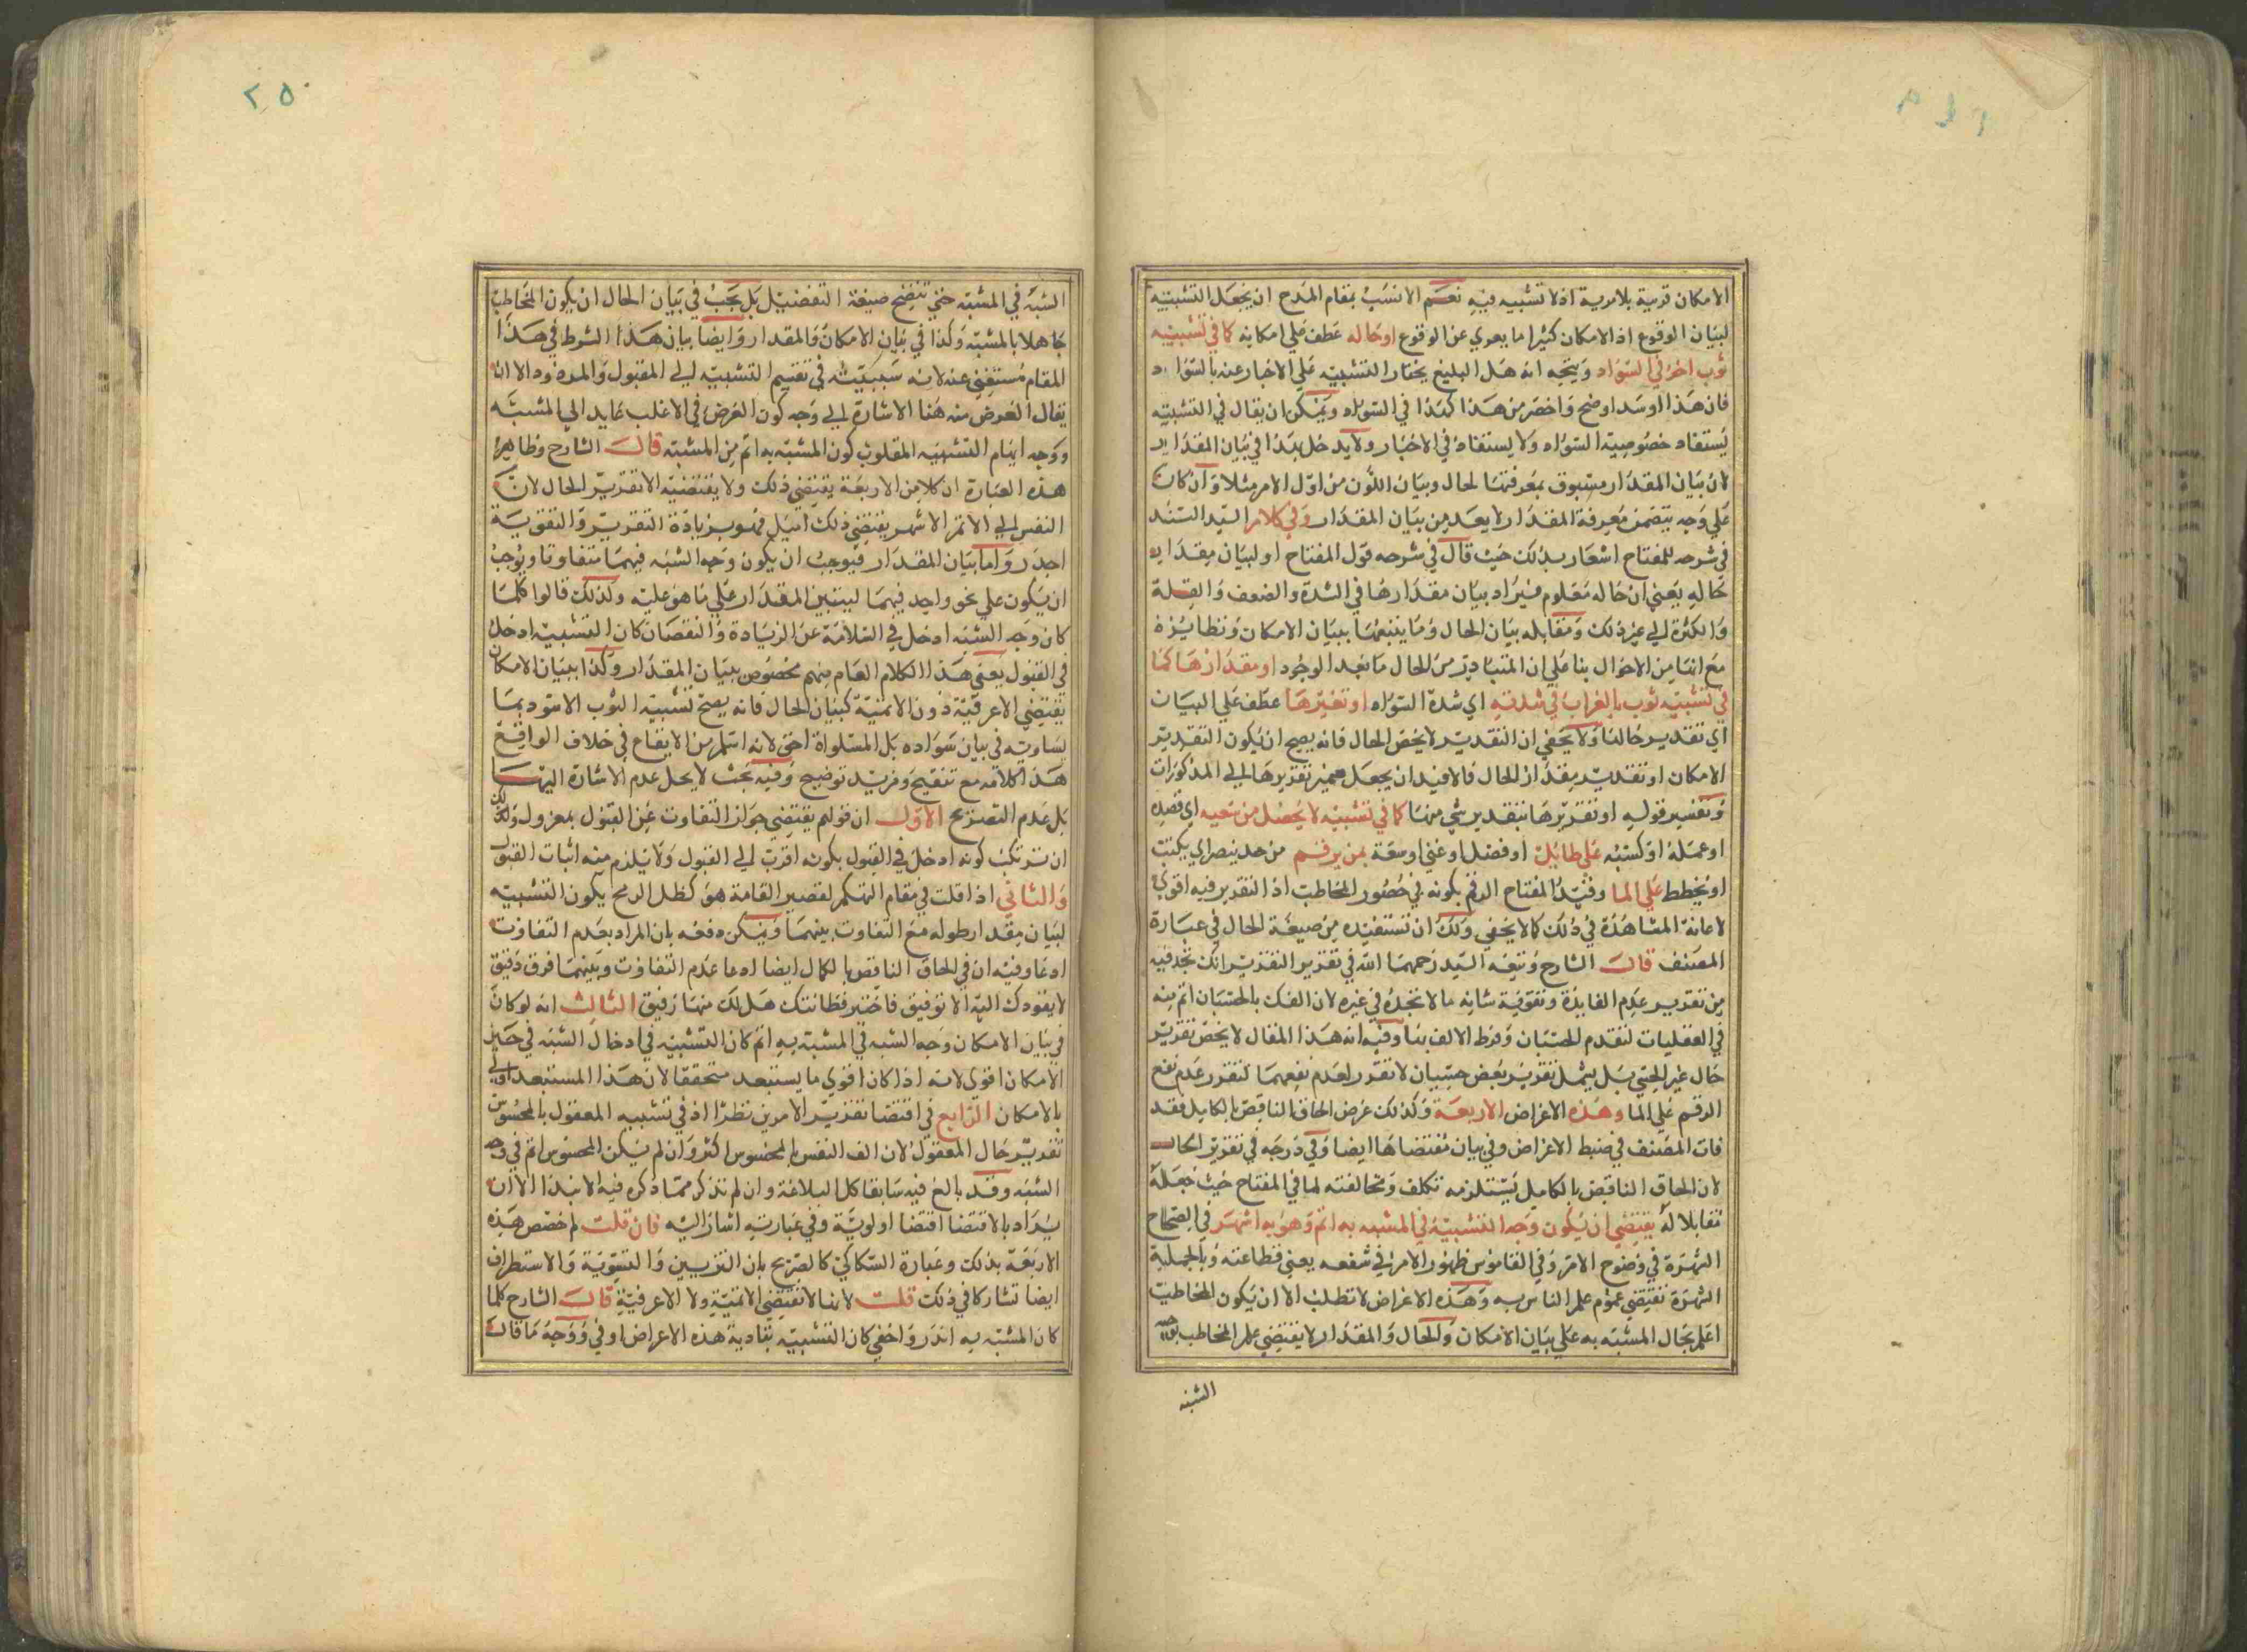 الامكان قرينة بلا مرية اذ لا تشبيه فيه نعم الانسب بمقام المدح ان يجعل التشبيه
لبيان الوقوع اذ الامكان كثيرا ما يعري عن الوقوع او حاله عطف على امكانه كما في تشبيه
ثوب اخر في السواد ويتجه انه هل البليغ يختار التشبيه على الاخبار عنه بالسواد
فان هذا اسود اوضح واخصر من هذا كهذا في السواد ويمكن ان يقال في التشبيه
يستفاد خصوصية السواد ولا يستفاد في الاخبار ولا يدخل بهذا في بيان المقدار
لان بيان المقدار مسبوق بمعرفتها الحال وبيان اللون من اول الامر مثلا وان كان
على وجه يتضمن معرفة المقدار لا يعد من بيان المقدار وفي كلام السيد السند
في شرحه للمفتاح اشعار بذلك حيث قال في شرحه قول المفتاح او لبيان مقدار
حاله يعني ان حاله معلوم فيراد بيان مقدارها في الشدة والضعف والقلة
والكثرة الى غير ذلك ومقابله بيان الحال وما يتبعها ببيان الامكان ونظايره
مع انها من الاحوال بنا على ان المتبادر من الحال ما بعد الوجود او مقدارها كما
في تشبيه ثوب بالغراب في شدته اي شدة السواد او تقريرها عطف على البيان
اي تقدير حالها ولا يخفى ان التقدير لا يخص الحال فانه يصح ان يكون التقدير
الامكان او تقدير مقدار الحال فالافيد ان يجعل ضمير تقريرها الى المذكورات
وتفسير قوله او تقريرها بتقدير شي منها كما في تشبيه من لا يحصل من سعيه اي قصده
او عمله او كسبه على طايل او فضل او غنى او سعة بمن يرقم من حد ينصر اي يكتب
او يخطط على الما وقيد المفتاح الرقم بكونه في حضور المخاطب اذ التقرير فيه اقوى
لاعانة المشاهدة في ذلك كما لا يخفى ولك ان تستفيده من صيغة الحال في عبارة
المصنف قال الشارح وتبعه السيد رحمهما الله في تقرير التقرير انك تجد فيه
من تقرير عدم الفايدة وتقوية شانه ما لا تجده في غيره لان الفك بالحسيات اتم منه
في العقليات لتقدم الحسيات وفرط الالف بها وفيه انه هذا المقال لا يخص تقرير
حال غير الحسي بل يشمل تقرير بعض حسيات لا تقرر لعدم نفعهما كتقرر عدم نفع
الرقم على الما وهذه الاغراض الاربعة وكذلك غرض الحاق الناقص بالكامل فقد
فات المصنف في ضبط الاغراض وفي بيان مقتضاها ايضا وفي درجه في تقرير الحال
لان الحاق الناقص بالكامل يستلزمه تكلف ومخالفته لما في المفتاح حيث جعله
تقابلا له يقتضي ان يكون وجه التشبيه في المشبه به اتم وهو به اشهر في الصحاح
الشهرة في وضوح الامر وفي القاموس ظهور الامر في شنعه يعني فظاعته وبالجملة
الشهرة تقتضي عموم علم الناس به وهذه الاغراض لا تطلب الا ان يكون المخاطب
اعلم بحال المشبه به على بيان الامكان والحال والمقدار لا يقتضي علم المخاطب بوجه
الشبه
٢٥٠
الشبه في المشبه حتى تتضح صيغة التفضيل بل يجب في بيان الحال ان يكون المخاطب
جاهلا بالمشبه وكذا في بيان الامكان والمقدار وايضا بيان هذا الشرط في هذا
المقام مستغنى عنه لانه سيبيت في تقسيم التشبيه الى المقبول والمردود الا ان
يقال الغرض منه هنا الاشارة الى وجه كون الغرض في الاغلب عايد الى المشبه
ووجه ايهام التشبيه المقلوب كون المشبه به اتم من المشبه قال الشارح وظاهر
هذه العبارة ان كلا من الاربعة يقتضي ذلك ولا يقتضيه الا تقرير الحال لان
النفس الى الاتم الاشهر يقتضي ذلك اميل فهو بزيادة التقرير والتقوية
اجدر واما بيان المقدار فيوجب ان يكون وجه الشبه فيهما متفاوتا ويوجب
ان يكون على نحو واحد فيهما ليبين المقدار على ما هو عليه ولذلك قالوا كلما
كان وجه الشبه ادخل في السلامة عن الزيادة والنقصان كان التشبيه ادخل
في القبول يعني هذا الكلام العام منهم مخصوص ببيان المقدار وكذا ببيان الامكان
يقتضي الاعرفية دون الاتمية كبيان الحال فانه يصح تشبيه الثوب الاسود بما
يساويه في بيان سواده بل المساواة احق لانه اسلم من الايقاع في خلاف الواقع
هذا كلامه مع تنقيح ومزيد توضيح وفيه بحث لا يحل عدم الاشارة اليها
بل عدم التصريح الاول ان قولهم يقتضي جواز التفاوت عن القبول بمعزول ولك
ان ترتكب كونه ادخل في القبول بكونه اقرب الى القبول ولا يلزم منه اثبات القبول
والثاني اذا قلت في مقام التهكم لقصير القامة هو كظل الرمح يكون التشبيه
لبيان مقدار طوله مع التفاوت بينهما ويمكن دفعه بان المراد بعدم التفاوت
ادعا وفيه ان في الحاق الناقص بالكمال ايضا ادعا عدم التفاوت وبينهما فرق دقيق
لا يقودك اليه الا توفيق فاختبر فطانتك هل لك منها رفيق الثالث انه لو كان
في بيان الامكان وجه الشبه في المشبه به اتم كان التشبيه في ادخال الشبه في حيز
الامكان اقوى لانه اذا كان اقوى ما يستبعد متحققا لان هذا المستبعد اولى
بالامكان الرابع في اقتضا تقرير الامرين نظرا اذ في تشبيه المعقول بالمحسوس
تقرير حال المعقول لان الف النفس بالمحسوس اكثر وان لم يكن المحسوس اتم في وجه
الشبه وقد بالغ فيه سابقا كل البلاغة وان لم تذكر مما ذكره فيه الا نبذا الا ان
يراد بالاقتضا اقتضا اولوية وفي عبارته اشار اليه فان قلت لم خصص هذه
الاربعة بذلك وعبارة السكاكي كالصريح بان التزيين والتسوية والاستطراف
ايضا تشاركا في ذلك قلت لانها لا تقتضي الاتمية ولا الاعرفية قال الشارح كلما
كان المشبه به اندر واخفى كان التشبيه بتادية هذه الاغراض اوفى ووجه ما قال